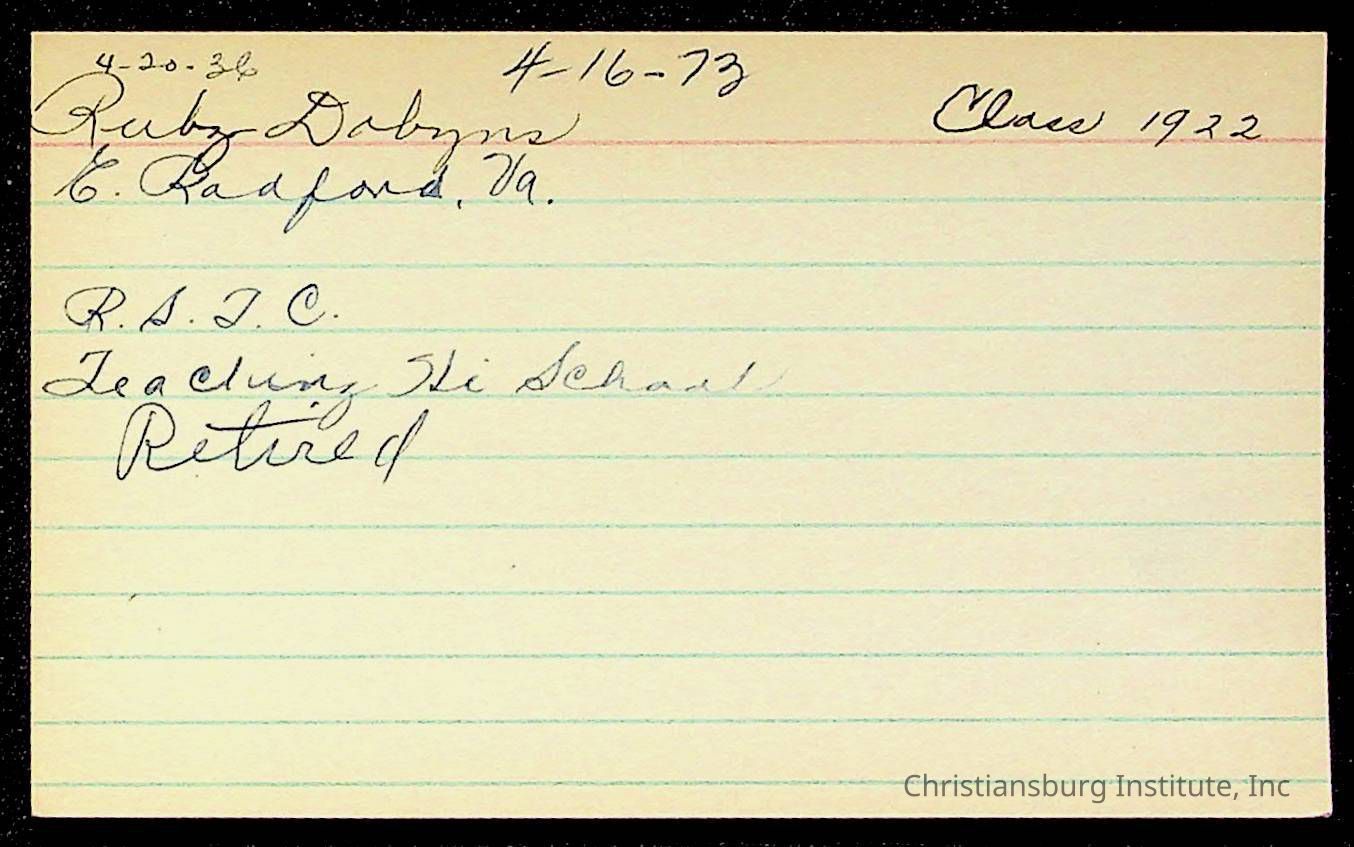 4-20-36 4-16-73
Ruby Dobyns Class 1922
E. Radford, Va.
R. S. T. C.
Teaching Hi School
Retired
Christiansburg Institute, Inc